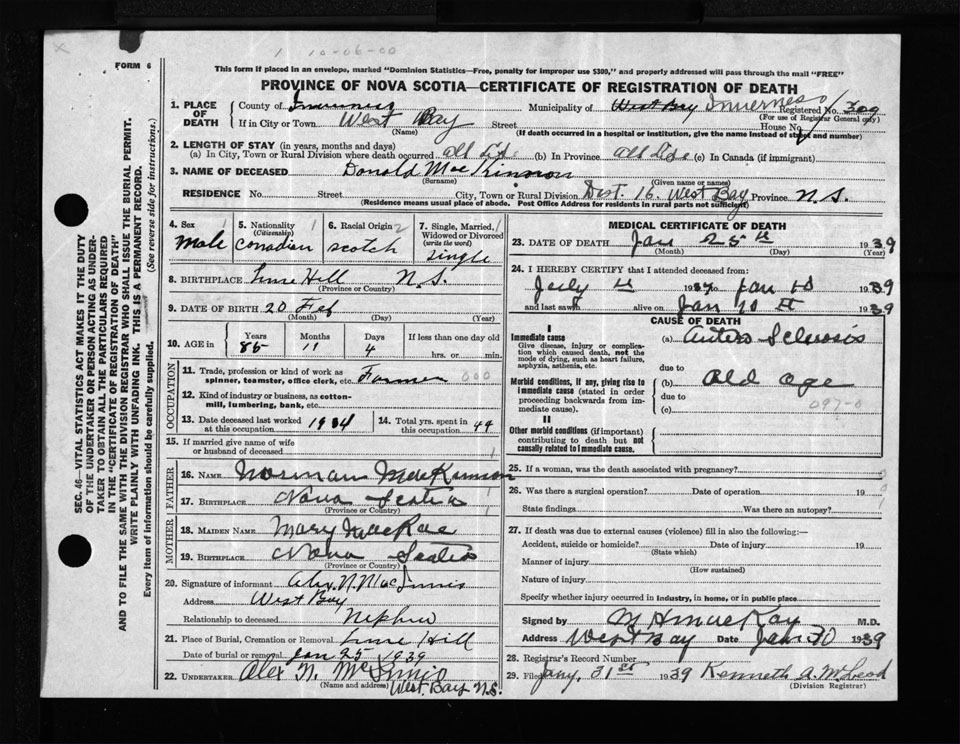 10-06-00
FORM 6
This form if placed in an envelope, marked "Dominion Statistics—Free, penalty for improper use $300," and properly addressed will pass through the mail "FREE"
PROVINCE OF NOVA SCOTIA—CERTIFICATE OF REGISTRATION OF DEATH
1. PLACE OF DEATH
County of Inverness
Municipality of West Bay Inverness Registered No. 309
(For use of Registrar General only)
If in City or Town West Bay Street House No.
(Name) (If death occurred in a hospital or institution, give the name instead of street and number)
2. LENGTH OF STAY (in years, months and days)
(a) In City, Town or Rural Division where death occurred all Life (b) In Province all Life (c) In Canada (if immigrant)
3. NAME OF DECEASED Donald MacKinnon
(Surname) (Given name or names)
RESIDENCE No. Street City, Town or Rural Division Dist. 16. West Bay Province N.S.
(Residence means usual place of abode. Post Office Address for residents in rural parts not sufficient)
4. Sex Male
5. Nationality (Citizenship) Canadian
6. Racial Origin Scotch
7. Single, Married, Widowed or Divorced (write the word) Single
8. BIRTHPLACE Lime Hill N.S.
(Province or Country)
9. DATE OF BIRTH 20 Feb
(Month) (Day) (Year)
10. AGE in Years Months Days If less than one day old
85 11 4 hrs. or min.
OCCUPATION
11. Trade, profession or kind of work as spinner, teamster, office clerk, etc. Farmer 000
12. Kind of industry or business, as cotton-mill, lumbering, bank, etc.
13. Date deceased last worked at this occupation 1934
14. Total yrs. spent in this occupation 49
15. If married give name of wife or husband of deceased
FATHER
16. NAME Norman MacKinnon
17. BIRTHPLACE Nova Scotia
(Province or Country)
MOTHER
18. MAIDEN NAME Mary MacRae
19. BIRTHPLACE Nova Scotia
(Province or Country)
20. Signature of informant Alex. N. MacInnis
Address West Bay
Relationship to deceased Nephew
21. Place of Burial, Cremation or Removal Lime Hill
Date of burial or removal Jan 25 1939
22. UNDERTAKER Alex N. McInnis
(Name and address) West Bay N.S.
MEDICAL CERTIFICATE OF DEATH
23. DATE OF DEATH Jan 25th 1939
(Month) (Day) (Year)
24. I HEREBY CERTIFY that I attended deceased from:
July Jan 10 1939
and last saw alive on Jan 10th 1939
CAUSE OF DEATH
I
Immediate cause
Give disease, injury or complication which caused death, not the mode of dying, such as heart failure, asphyxia, asthenia, etc.
(a) Arterio Sclerosis
due to
Morbid conditions, if any, giving rise to immediate cause (stated in order proceeding backwards from immediate cause).
(b) Old age
due to
(c) 097-0
II
Other morbid conditions (if important) contributing to death but not causally related to immediate cause.
25. If a woman, was the death associated with pregnancy?
26. Was there a surgical operation? Date of operation 19
State findings Was there an autopsy?
27. If death was due to external causes (violence) fill in also the following:—
Accident, suicide or homicide? Date of injury 19
(State which)
Manner of injury
(How sustained)
Nature of injury
Specify whether injury occurred in industry, in home, or in public place
Signed by M H MacKay M.D.
Address West Bay Date Jan 30 1939
28. Registrar's Record Number
29. Filed Jany. 31st 1939 Kenneth A. McLeod
(Division Registrar)
SEC. 46—VITAL STATISTICS ACT MAKES IT THE DUTY
OF THE UNDERTAKER OR PERSON ACTING AS UNDER-
TAKER TO OBTAIN ALL THE PARTICULARS REQUIRED
IN THE "CERTIFICATE OF REGISTRATION OF DEATH"
AND TO FILE THE SAME WITH THE DIVISION REGISTRAR WHO SHALL ISSUE THE BURIAL PERMIT.
WRITE PLAINLY WITH UNFADING INK. THIS IS A PERMANENT RECORD.
Every item of information should be carefully supplied. (See reverse side for instructions.)